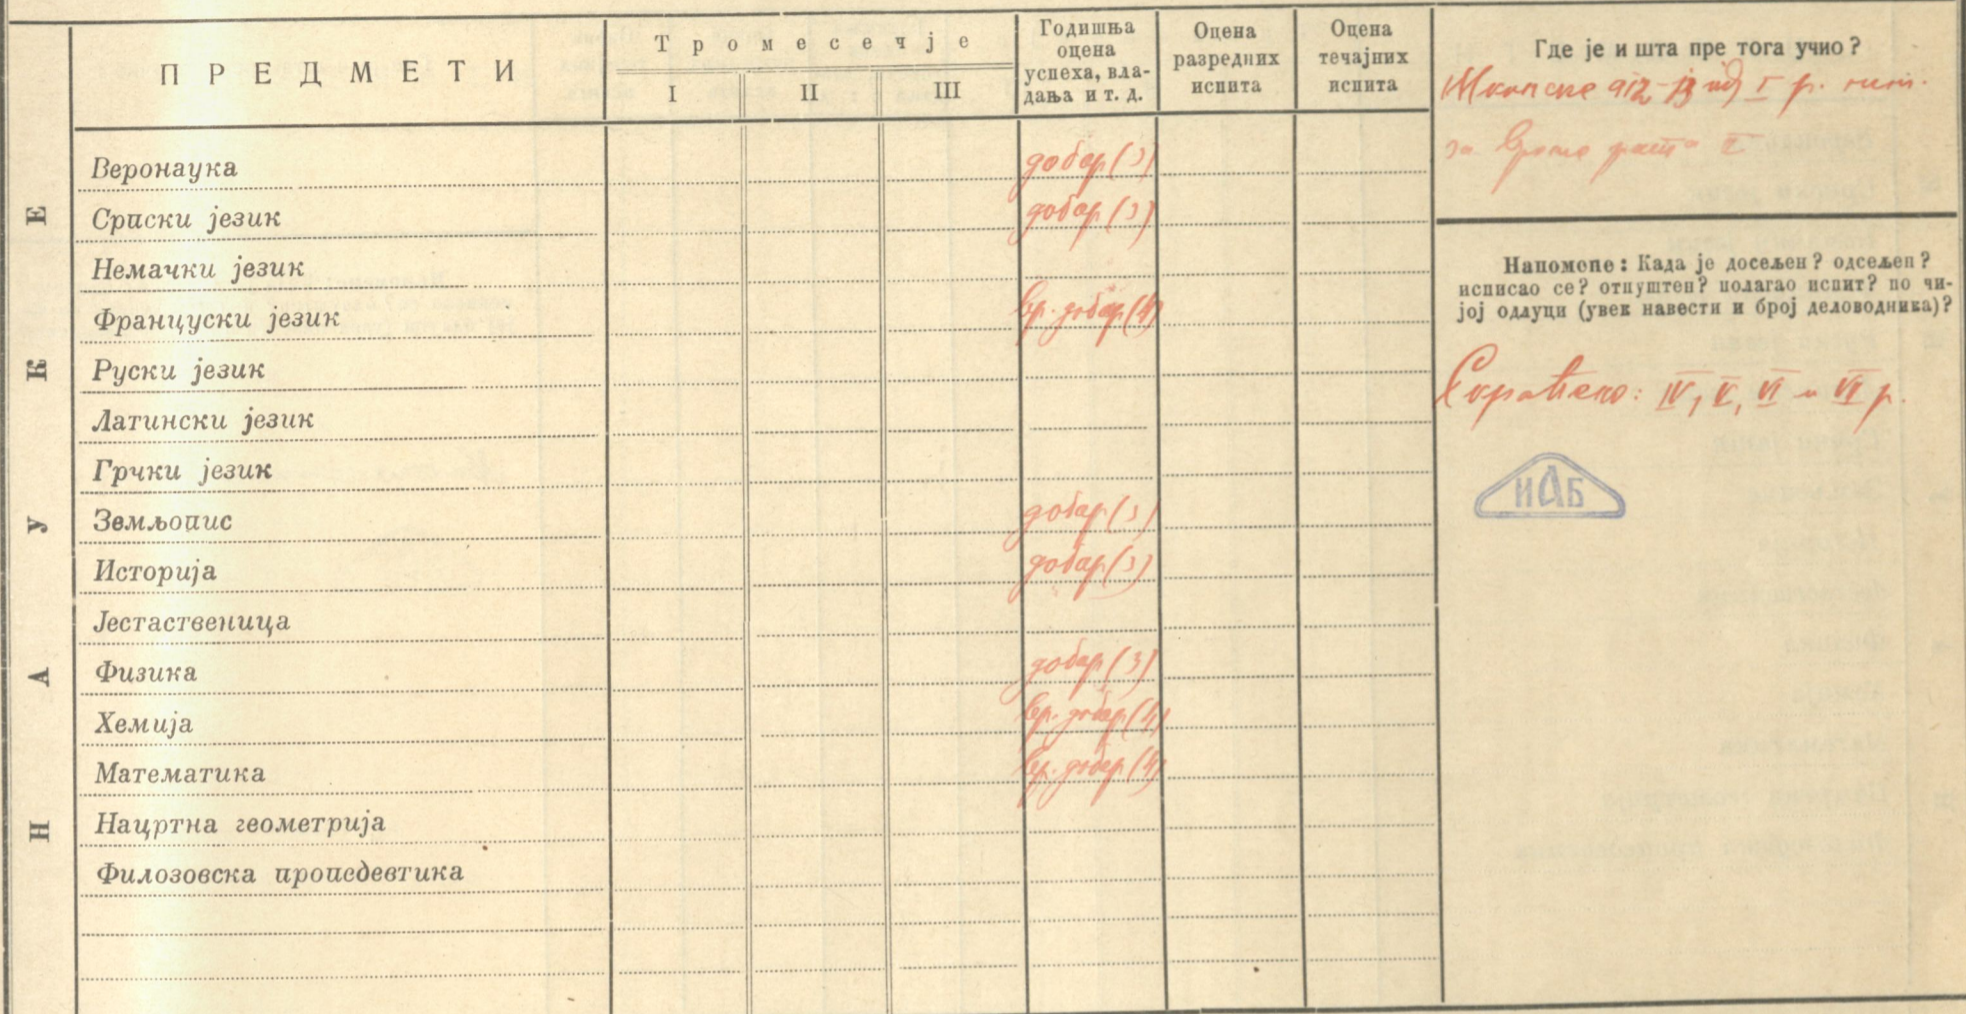 ПРЕДМЕТИ
Тромесечје
I II III
Годишња
оцена
успеха, вла-
дања и т. д.
Оцена
разредних
испита
Оцена
течајних
испита
НАУКЕ
Веронаука добар (3)
Српски језик добар (3)
Немачки језик
Француски језик вр. добар (4)
Руски језик
Латински језик
Грчки језик
Земљопис добар (3)
Историја добар (3)
Јестаственица
Физика добар (3)
Хемија вр. добар (4)
Математика вр. добар (4)
Нацртна геометрија
Филозовска пропедевтика
Где је и шта пре тога учио?
912-13 I р.
за време рата II
Напомене: Када је досељен? одсељен?
исписао се? отпуштен? полагао испит? по чи-
јој одлуци (увек навести и број деловодника)?
Скраћено: IV, V, VI и VII р.
ИАБ